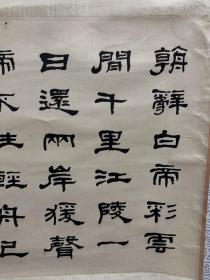 朝辭白帝彩雲
間千里江陵一
日還兩岸猨聲
啼不住輕舟已